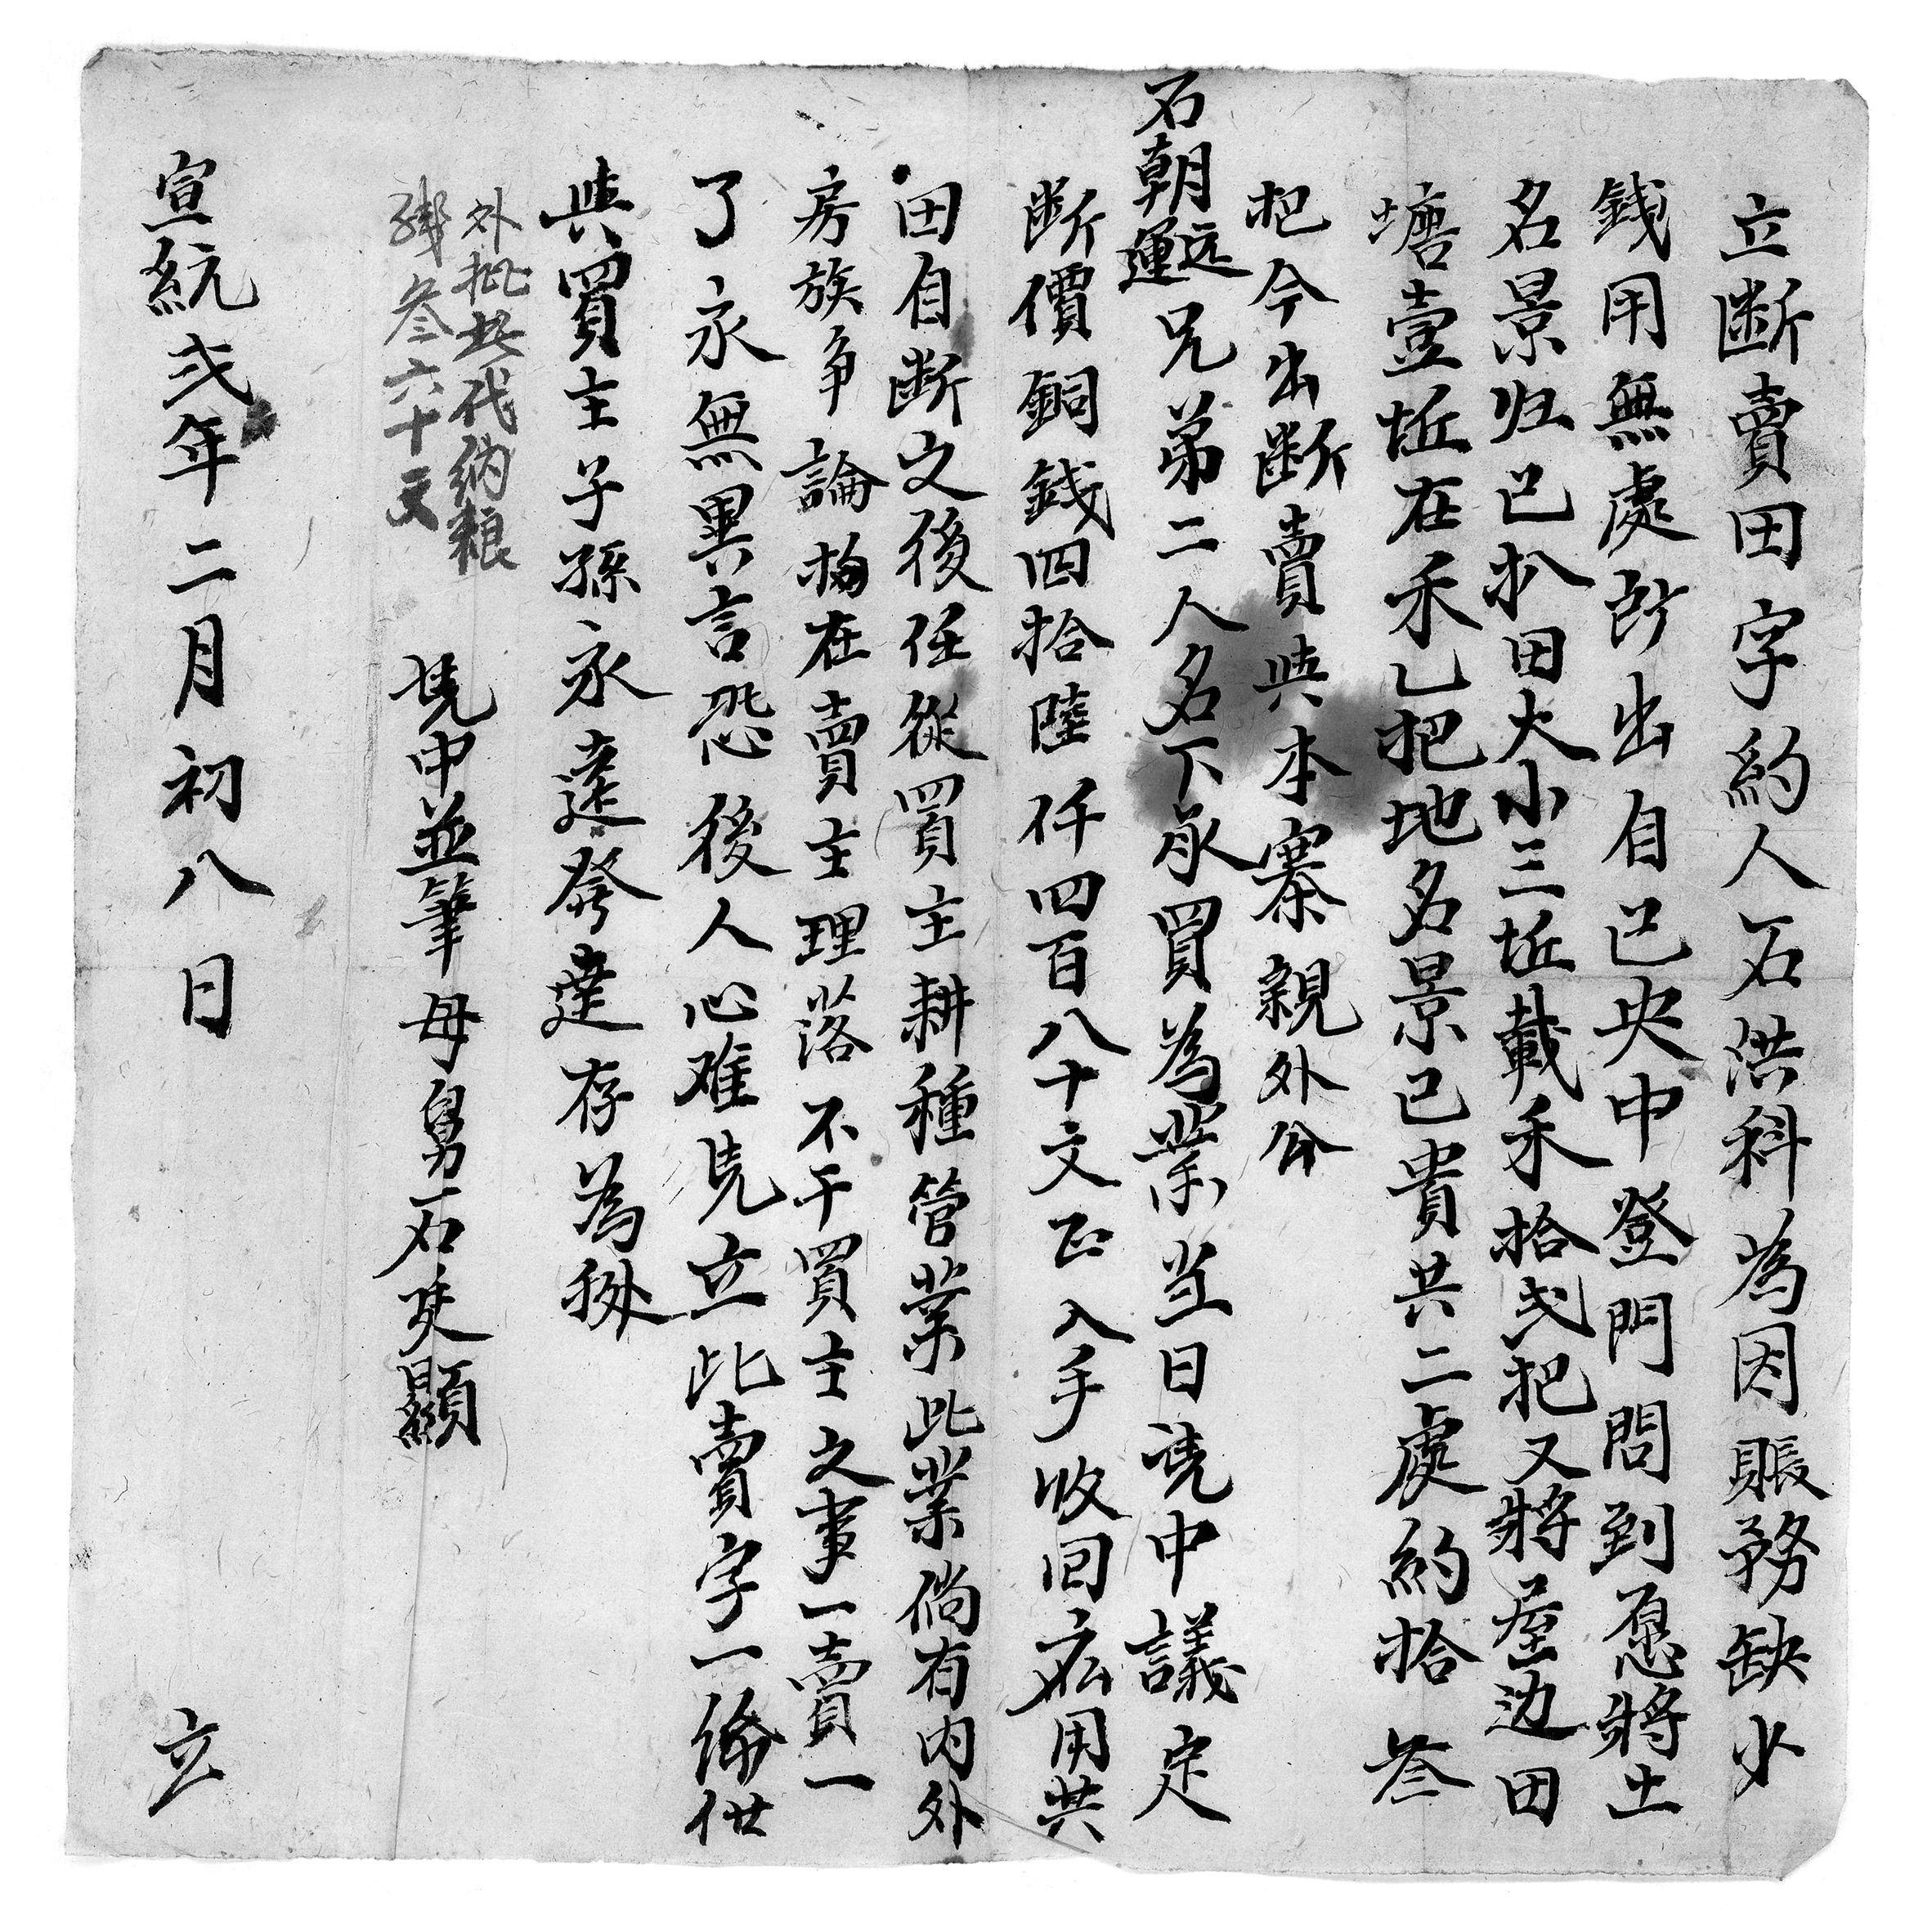 立断賣田字約人石洪科為因賬務缺少
錢用無處所出自己央中登門問到愿將土
名景归己扒田大小三坵載禾拾弍把又將屋边田
塘壹坵在禾乚把地名景已貴共二處約拾叁
把今出断賣與本寨親外分
石朝远運兄弟二人名下承買為業当日凭中議定
断價銅錢四拾陸仟四百八十文正入手收囬応用共
田自断之後任從買主耕種管業此業倘有内外
房族争論拘在賣主理落不干買主之事一賣一
了永無異言恐後人心难凭立此賣字一紙供
與買主子孫永遠發達存為㨿
外批此代纳粮
錢叁六十文
凭中並筆母舅石灵顯
宣統弍年二月初八日立